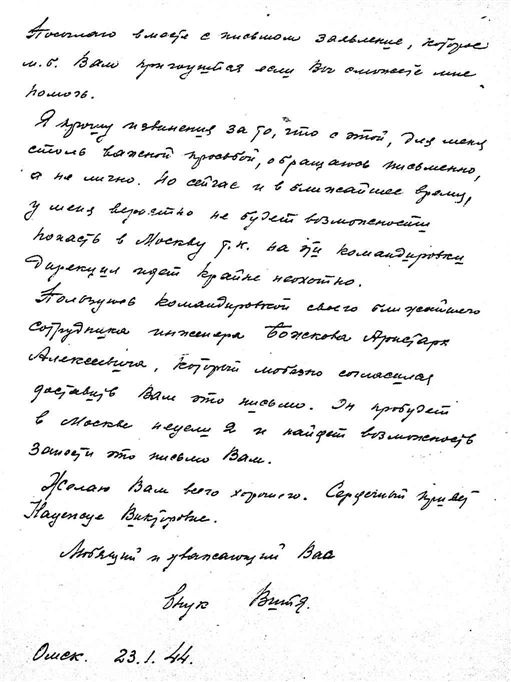 Посылаю вместе с письмом заявление, которое
м.б. Вам пригодится если Вы сможете мне
помочь.
Я прошу извинения за то, что с этой, для меня
столь важной просьбой, обращаюсь письменно,
а не лично. Но сейчас и в ближайшее время,
у меня вероятно не будет возможности
попасть в Москву т.к. на эти командировки
Дирекция идет крайне неохотно.
Пользуюсь командировкой своего ближайшего
сотрудника инженера Божкова Аристарх
Алексеевича, который любезно согласился
доставить Вам это письмо. Он пробудет
в Москве недели и найдет возможность
занести это письмо Вам.
Желаю Вам всего хорошего. Сердечный привет
Надежде Викторовне.
Любящий и уважающий Вас
внук Витя.
Омск. 23.1.44.